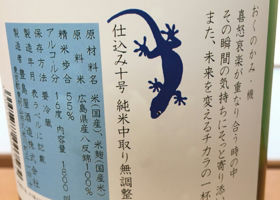 おくのかみ 機
喜怒哀楽が重なり合う時の中
その瞬間の気持ちにそっと寄り添い
また、未来を変えるチカラの一杯
仕込み十号 純米中取り無調整
原材料名 米(国産)、米麹(国産米)
原料米 広島県産八反錦100%
精米歩合 55%
アルコール分 16度 内容量 1800
保存方法 要冷蔵
製造年月 表ラベルに記載
製造者 豊島屋酒造株式会社